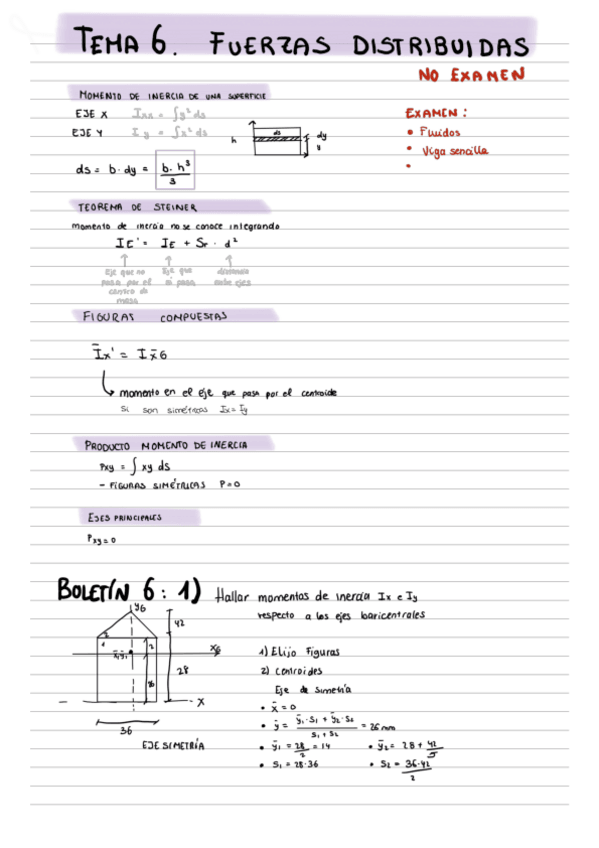 TEMA 6. FUERZAS DISTRIBUIDAS
NO EXAMEN
MOMENTO DE INERCIA DE UNA SUPERFICIE
EJE X Ixx = ∫y² ds
EJE Y Iy = ∫x² ds
h ds dy y
EXAMEN:
• Fluidos
• Viga sencilla
•
ds = b · dy = b · h³ / 3
TEOREMA DE STEINER
momento de inercia no se conoce integrando
IE' = IE + Sr · d²
Eje que no pasa por el centro de masa
Eje que si pasa
distancia
FIGURAS COMPUESTAS
Īx' = Ix̄G
momento en el eje que pasa por el centroide
si son simétricas Ix=Iy
PRODUCTO MOMENTO DE INERCIA
Pxy = ∫ xy ds
- FIGURAS SIMÉTRICAS P=0
EJES PRINCIPALES
Pxy=0
BOLETÍN 6: 1) Hallar momentos de inercia Ix e Iy
respecto a los ejes baricentrales
yG
42
2
1
2
XG
x̄,ȳ,
28
X
36
EJE SIMETRÍA
1) Elijo Figuras
2) Centroides
Eje de simetría
• x̄ = 0
• ȳ = ȳ₁·S₁ + ȳ₂·S₂ / S₁ + S₂ = 26 mm
• ȳ₁ = 28/2 = 14 • ȳ₂ = 28 + 42/3
• S₁ = 28·36 • S₂ = 36·42/2